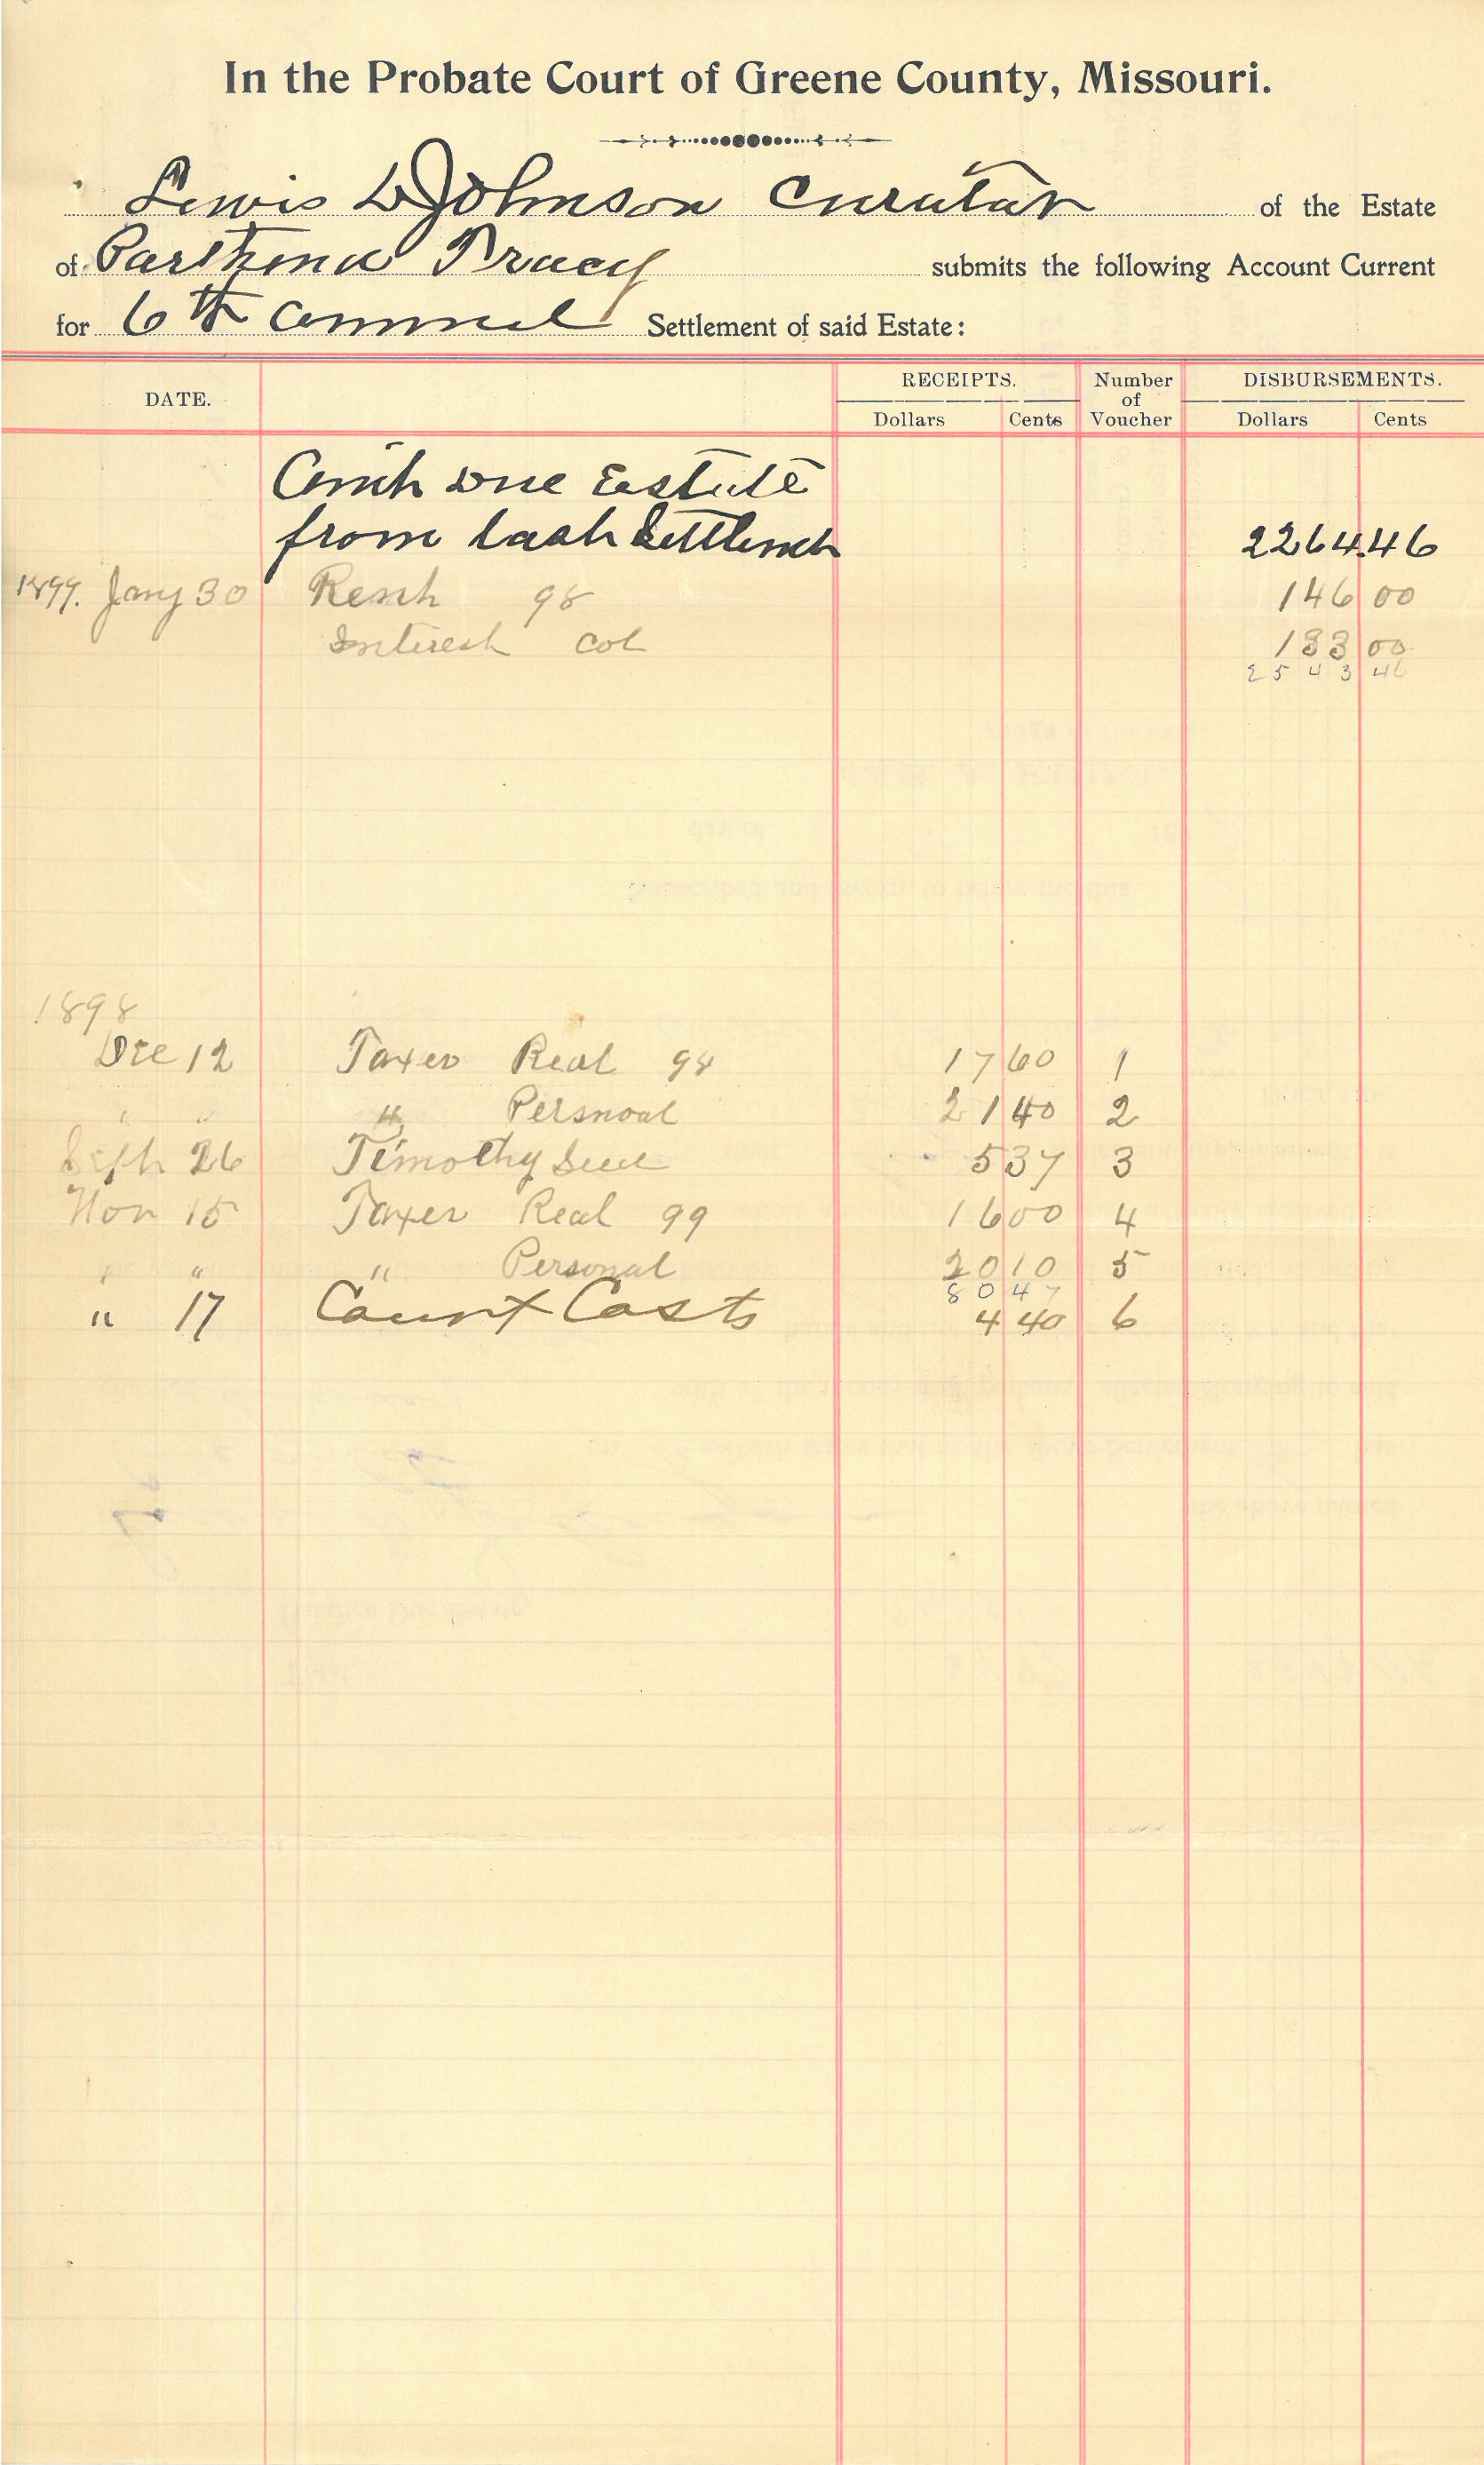 In the Probate Court of Greene County, Missouri.
Lewis L Johnson Curator of the Estate
of Parthena Tracy submits the following Account Current
for 6th annual Settlement of said Estate:
DATE. RECEIPTS. Number of Voucher DISBURSEMENTS.
Dollars Cents Dollars Cents
Cash due Estate
from last Settlement 2264.46
1899. Jany 30 Rent 98 146 00
Interest Col 133 00
2543 46
1898
Dec 12 Taxes Real 98 17 60 1
" " " Persnoal 21 40 2
Sept 26 Timothy Seed 5 37 3
Nov 15 Taxes Real 99 16 00 4
" " " Personal 20 10 5
80 47
" 17 Court Costs 4 40 6